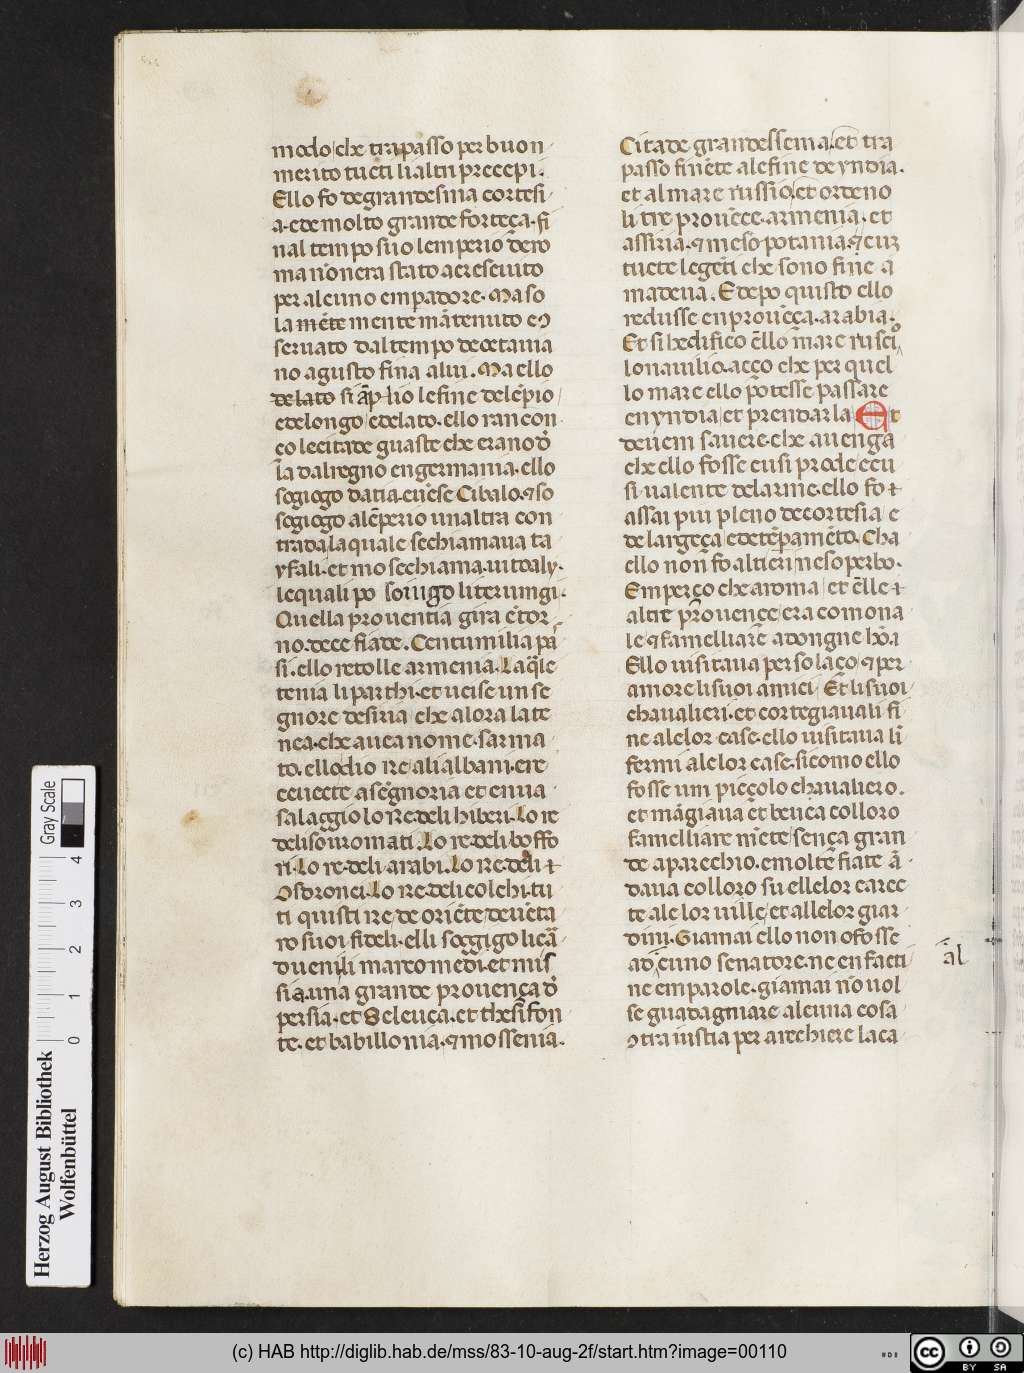 modo che trapasso per buon
merito tucti li altri precepi.
Ello fo de grandesma cortesi
a. ede molto grande forteça. fi
nal tempo suo lemperio d̄ero
ma nōn era stato acresciuto
per alcuno empadore. Ma so
la mēte mente mātenuto eↄ
seruato dal tempo de octauia
no agusto fina alui. Ma ello
de lato si āplio le fine delēpio
edelongo edelato. ello rancon
co le citade guaste che erano d̄
la dal regno en germania. ello
sogiogo datia. euēse Cibalo. ⁊ so
sogiogo alēperio unaltra con
trada la quale se chiamaua ta
yfali. et mo se chiama. uitoaly.
le quali po soiugo li teruingi.
Quella prouentia gira ētor
no. dece fiade. Centumilia pā
si. ello retolle armenia. La q̄le
tenia li parthi. et ucise un se
gnore de siria che alora la te
nea. che auea nome. sarma
to. ello dio re ali albani. ere
ceuecte a sēgnoria et en ua
salaggio lo re. deli hiberi. Lo re
deli souromati. Lo re. deli boffo
ri. Lo re. deli arabi. Lo re. deli ⁊
Osdronei. Lo re. deli colchi. tu
ti quisti re de oriēte deuēta
ro suoi fideli. elli soggigo li cā
duenili marcomedi. et mis
sia. una grande prouença d̄
persia. et Seleuca. et thesifon
te. et babillonia. ⁊ mossenia.
Citade grandessema. et tra
passo finēte ale fine de yndia.
et al mare russio et ordeno
li tre prouēce. armenia. et
assiria. ⁊ mesopotania. ⁊ cuz
tucte le gēti che sono fine a
madena. E depo quisto ello
redusse en prouēcca. arabia.
Et si hedifico ēllo mare rusci
lo nauilio. acço che per quel
lo mare ello potesse passare
en yndia et prendar la Et
deuem sauere. che auenga
che ello fosse cusi prode ecu
si ualente del arme. ello fo ⁊
assai piu pleno de cortesia e
de largeça ede tēpamēto. Cha
ello non fo altieri ne soperbo.
Emperço che aroma et ēlle ⁊
altre prouence era comona
le ⁊ famelliare adongne hōa
Ello uisitaua per solaço ⁊ per
amore li suoi amici Et li suoi
chaualieri. et cortegiauali fi
ne alelor case. ello uisitaua li
fermi ale lor case. sicomo ello
fosse um piccolo chaualiero.
et māgiaua et beuea colloro
famelliare mēte sença gran
de aparechio. emolte fiate ā
daua colloro su ellelor carec
te ale lor uille et allelor giar
dini. Giamai ello non ofosse
ad cuno senatore. ne en facti
al
ne em parole. giamai nō uol
se guadagniare alcuna cosa
ↄtra iustia per arechiere la ca
Gray Scale
0 1 2 3 4
Herzog August Bibliothek
Wolfenbüttel
(c) HAB http://diglib.hab.de/mss/83-10-aug-2f/start.htm?image=00110
cc BY SA